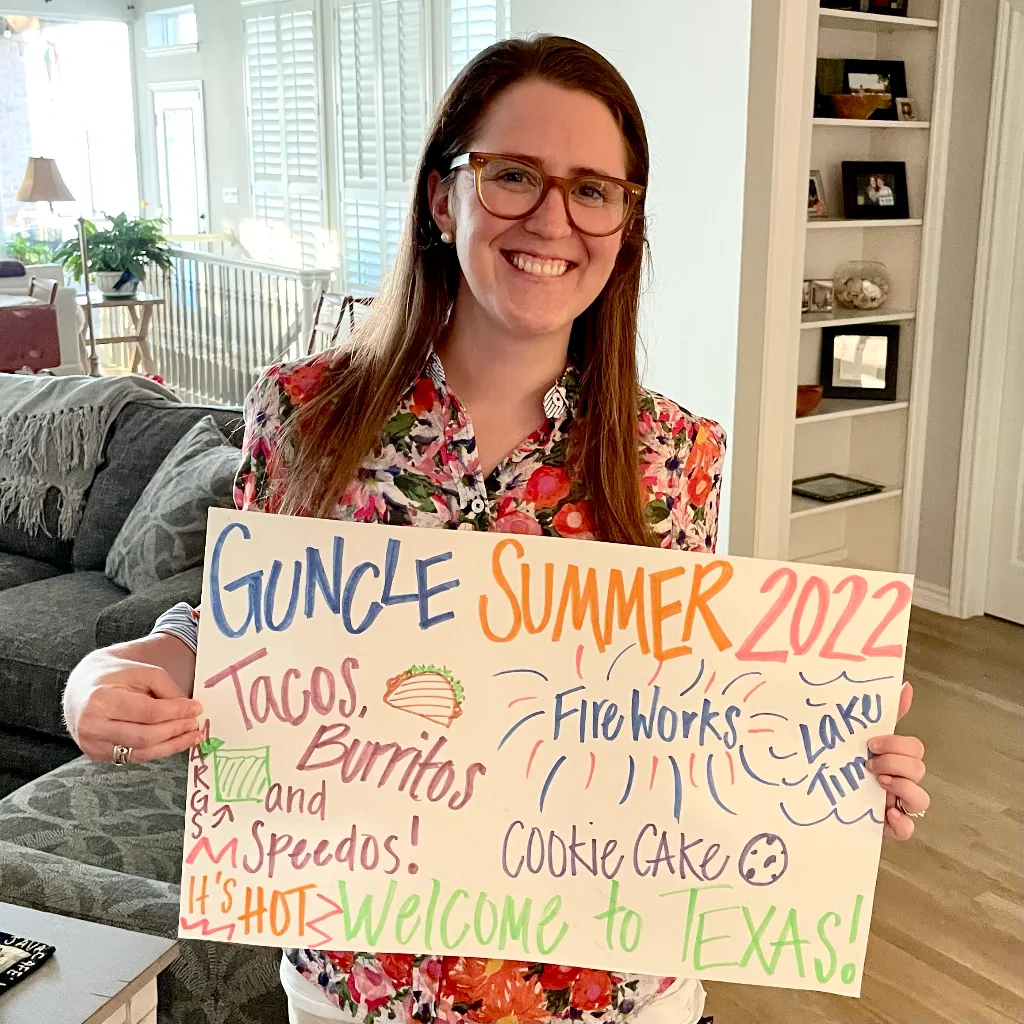 GUNCLE SUMMER 2022
Tacos,
Burritos
and
Speedos!
MARGS
FireWorks
Lake
Time
Cookie Cake
IT'S HOT
Welcome to TEXAS!